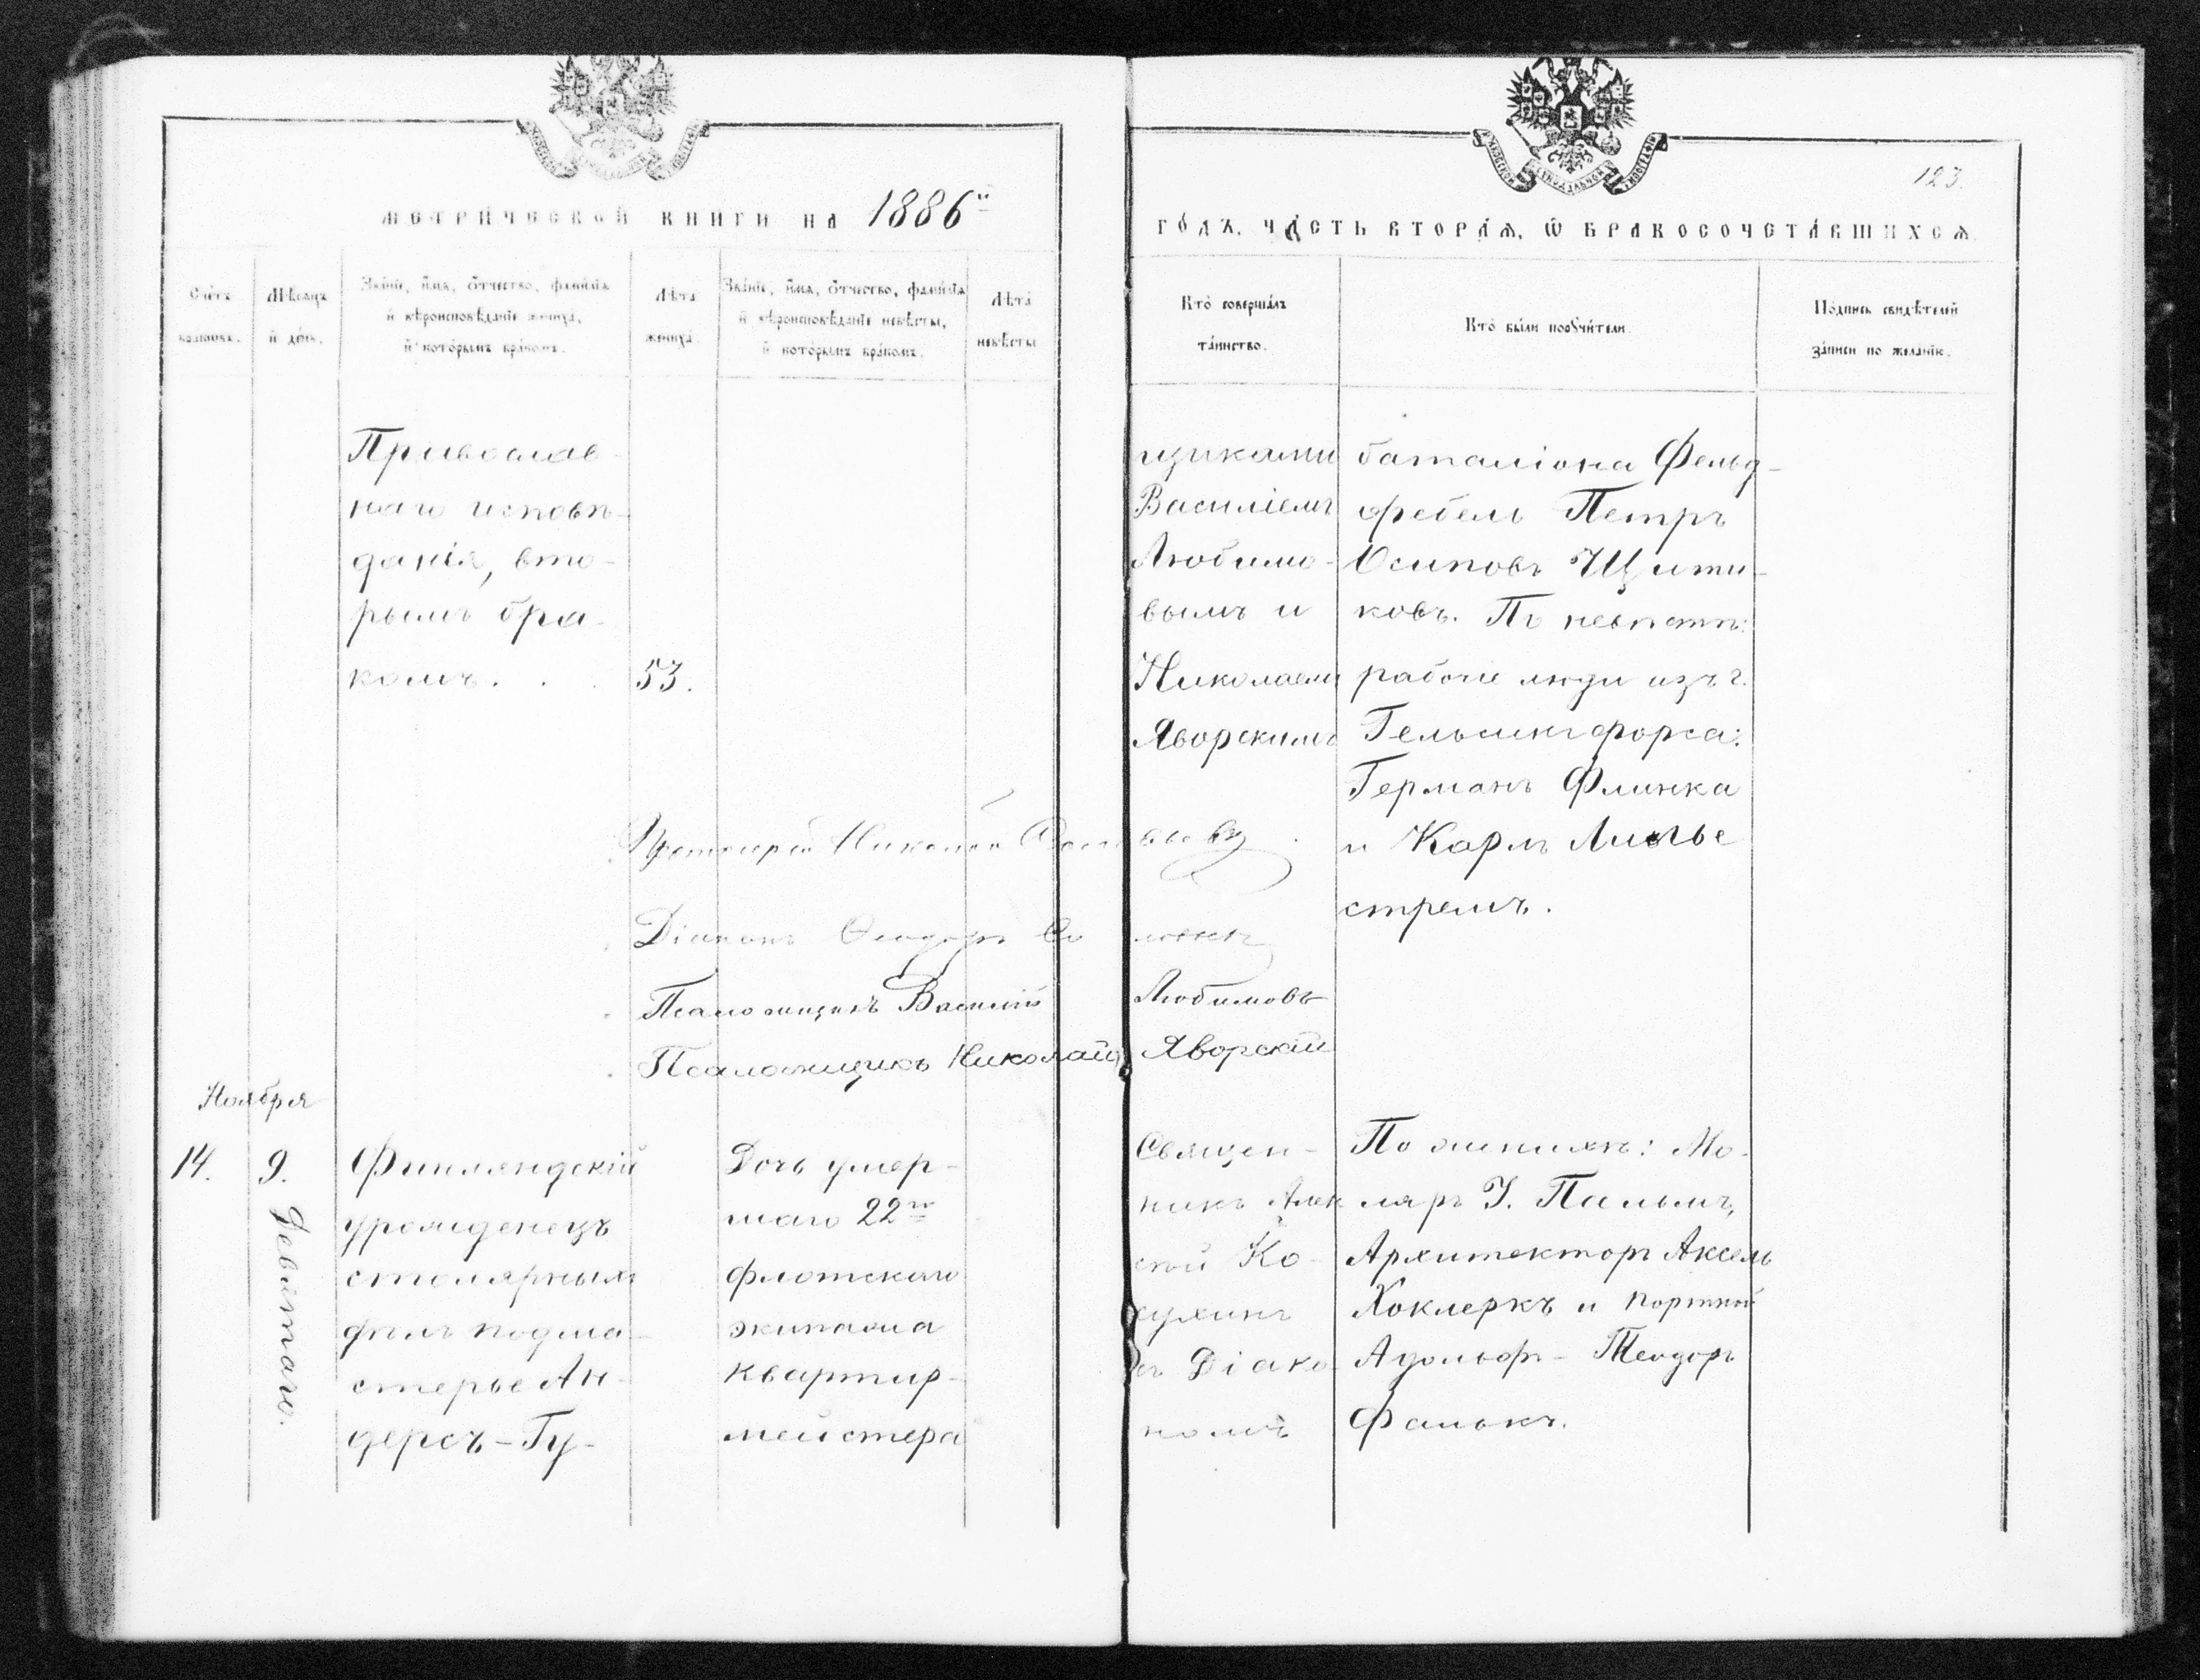 123.
МЕТРИЧЕСКОЙ КНИГИ НА 1886й
ГОДЪ, ЧАСТЬ ВТОРАЯ, Ѿ БРАКОСОЧЕТАВШИХСЯ.
Счетъ браковъ.
Мѣсяцъ и день.
Званіе, имя, отчество, фамилія
и вѣроисповѣданіе жениха,
и которымъ бракомъ.
Лѣта жениха.
Званіе, имя, отчество, фамилія
и вѣроисповѣданіе невѣсты,
и которымъ бракомъ.
Лѣта невѣсты
Кто совершалъ
таинство.
Кто были поручители.
Подпись свидѣтелей
записи по желанію.
Православ-
наго исповѣ-
данія, вто-
рымъ бра-
комъ. . .
53.
щиками
Василіемъ
Любимо-
вымъ и
Николаемъ
Яворскимъ
баталіона Фельд-
фебель Петръ
Осиповъ Щити-
ковъ. По невѣстѣ:
рабочіе люди изъ г.
Гельсингфорса:
Германъ Флинка
и Карлъ Лилье
стремъ.
Протоіерей Николай
Діаконъ Ѳеодоръ
Псаломщикъ Василій Любимовъ
Псаломщикъ Николай Яворскій
Ноября
14.
9.
Девятаго.
Финляндскій
уроженецъ
столярныхъ
дѣлъ подма-
стерье Ан-
дерсъ-Гу-
Дочь умер-
шаго 22го
флотскаго
экипажа
квартир-
мейстера
Священ-
никъ Алек
сѣй Ко-
кухинъ
съ Діако
номъ
По женихѣ: Мо-
ляръ І. Пальмъ,
Архитекторъ Аксель
Хоклеркъ и портной
Адольфъ-Теодоръ
Фалькъ.